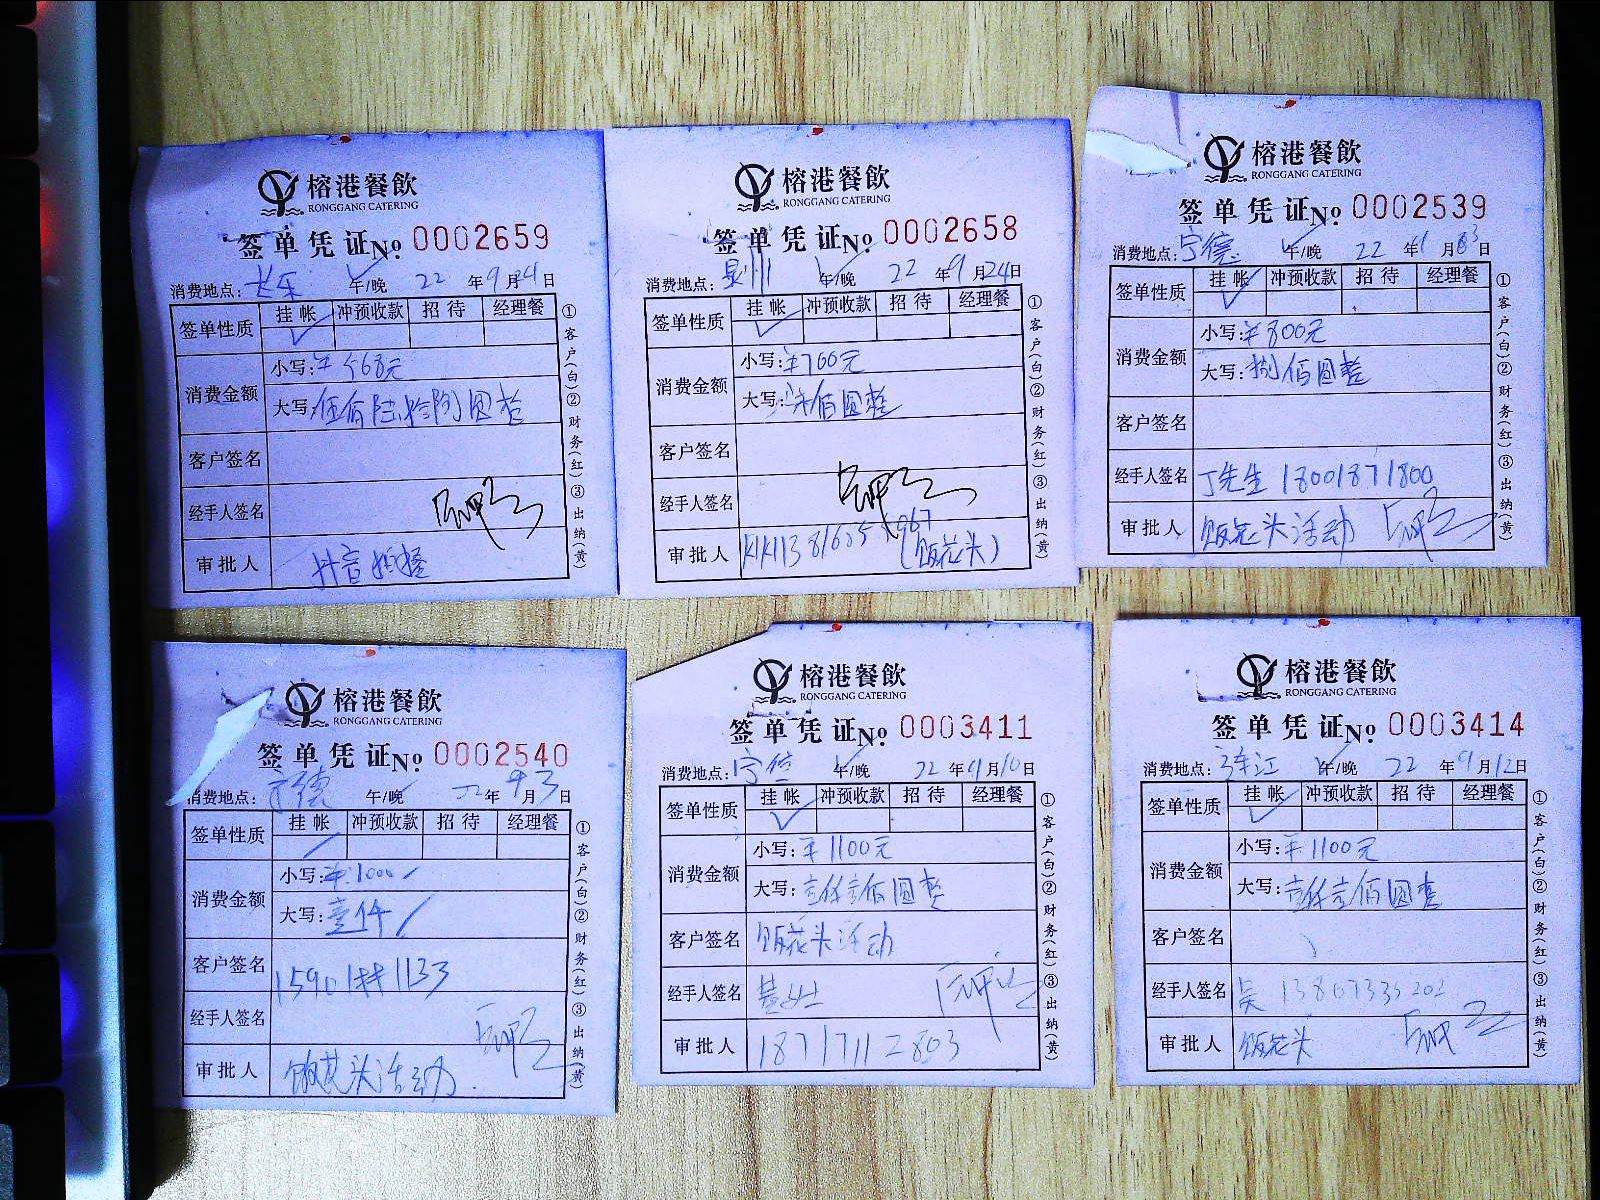 榕港餐飲
RONGGANG CATERING
签单凭证№ 0002659
消费地点：长乐 午/晚 22年9月24日
签单性质 挂帐 冲预收款 招待 经理餐
消费金额 小写：¥568元
大写：伍佰陆拾捌圆整
客户签名
经手人签名
审批人 抖音拍摄
①客户(白)②财务(红)③出纳(黄)
榕港餐飲
RONGGANG CATERING
签单凭证№ 0002658
消费地点： 午/晚 22年9月24日
签单性质 挂帐 冲预收款 招待 经理餐
消费金额 小写：¥700元
大写：柒佰圆整
客户签名
经手人签名
审批人 (饭花头)
①客户(白)②财务(红)③出纳(黄)
榕港餐飲
RONGGANG CATERING
签单凭证№ 0002539
消费地点：宁德 午/晚 22年9月3日
签单性质 挂帐 冲预收款 招待 经理餐
消费金额 小写：¥800元
大写：捌佰圆整
客户签名
经手人签名 丁先生 18001871800
审批人 饭花头活动
①客户(白)②财务(红)③出纳(黄)
榕港餐飲
RONGGANG CATERING
签单凭证№ 0002540
消费地点：宁德 午/晚 22年9月3日
签单性质 挂帐 冲预收款 招待 经理餐
消费金额 小写：¥1000
大写：壹仟
客户签名
经手人签名
审批人 饭花头活动
①客户(白)②财务(红)③出纳(黄)
榕港餐飲
RONGGANG CATERING
签单凭证№ 0003411
消费地点：宁德 午/晚 22年9月10日
签单性质 挂帐 冲预收款 招待 经理餐
消费金额 小写：¥1100元
大写：壹仟壹佰圆整
客户签名 饭花头活动
经手人签名
审批人 18717112803
①客户(白)②财务(红)③出纳(黄)
榕港餐飲
RONGGANG CATERING
签单凭证№ 0003414
消费地点：连江 午/晚 22年9月12日
签单性质 挂帐 冲预收款 招待 经理餐
消费金额 小写：¥1100元
大写：壹仟壹佰圆整
客户签名
经手人签名 吴
审批人 饭花头
①客户(白)②财务(红)③出纳(黄)